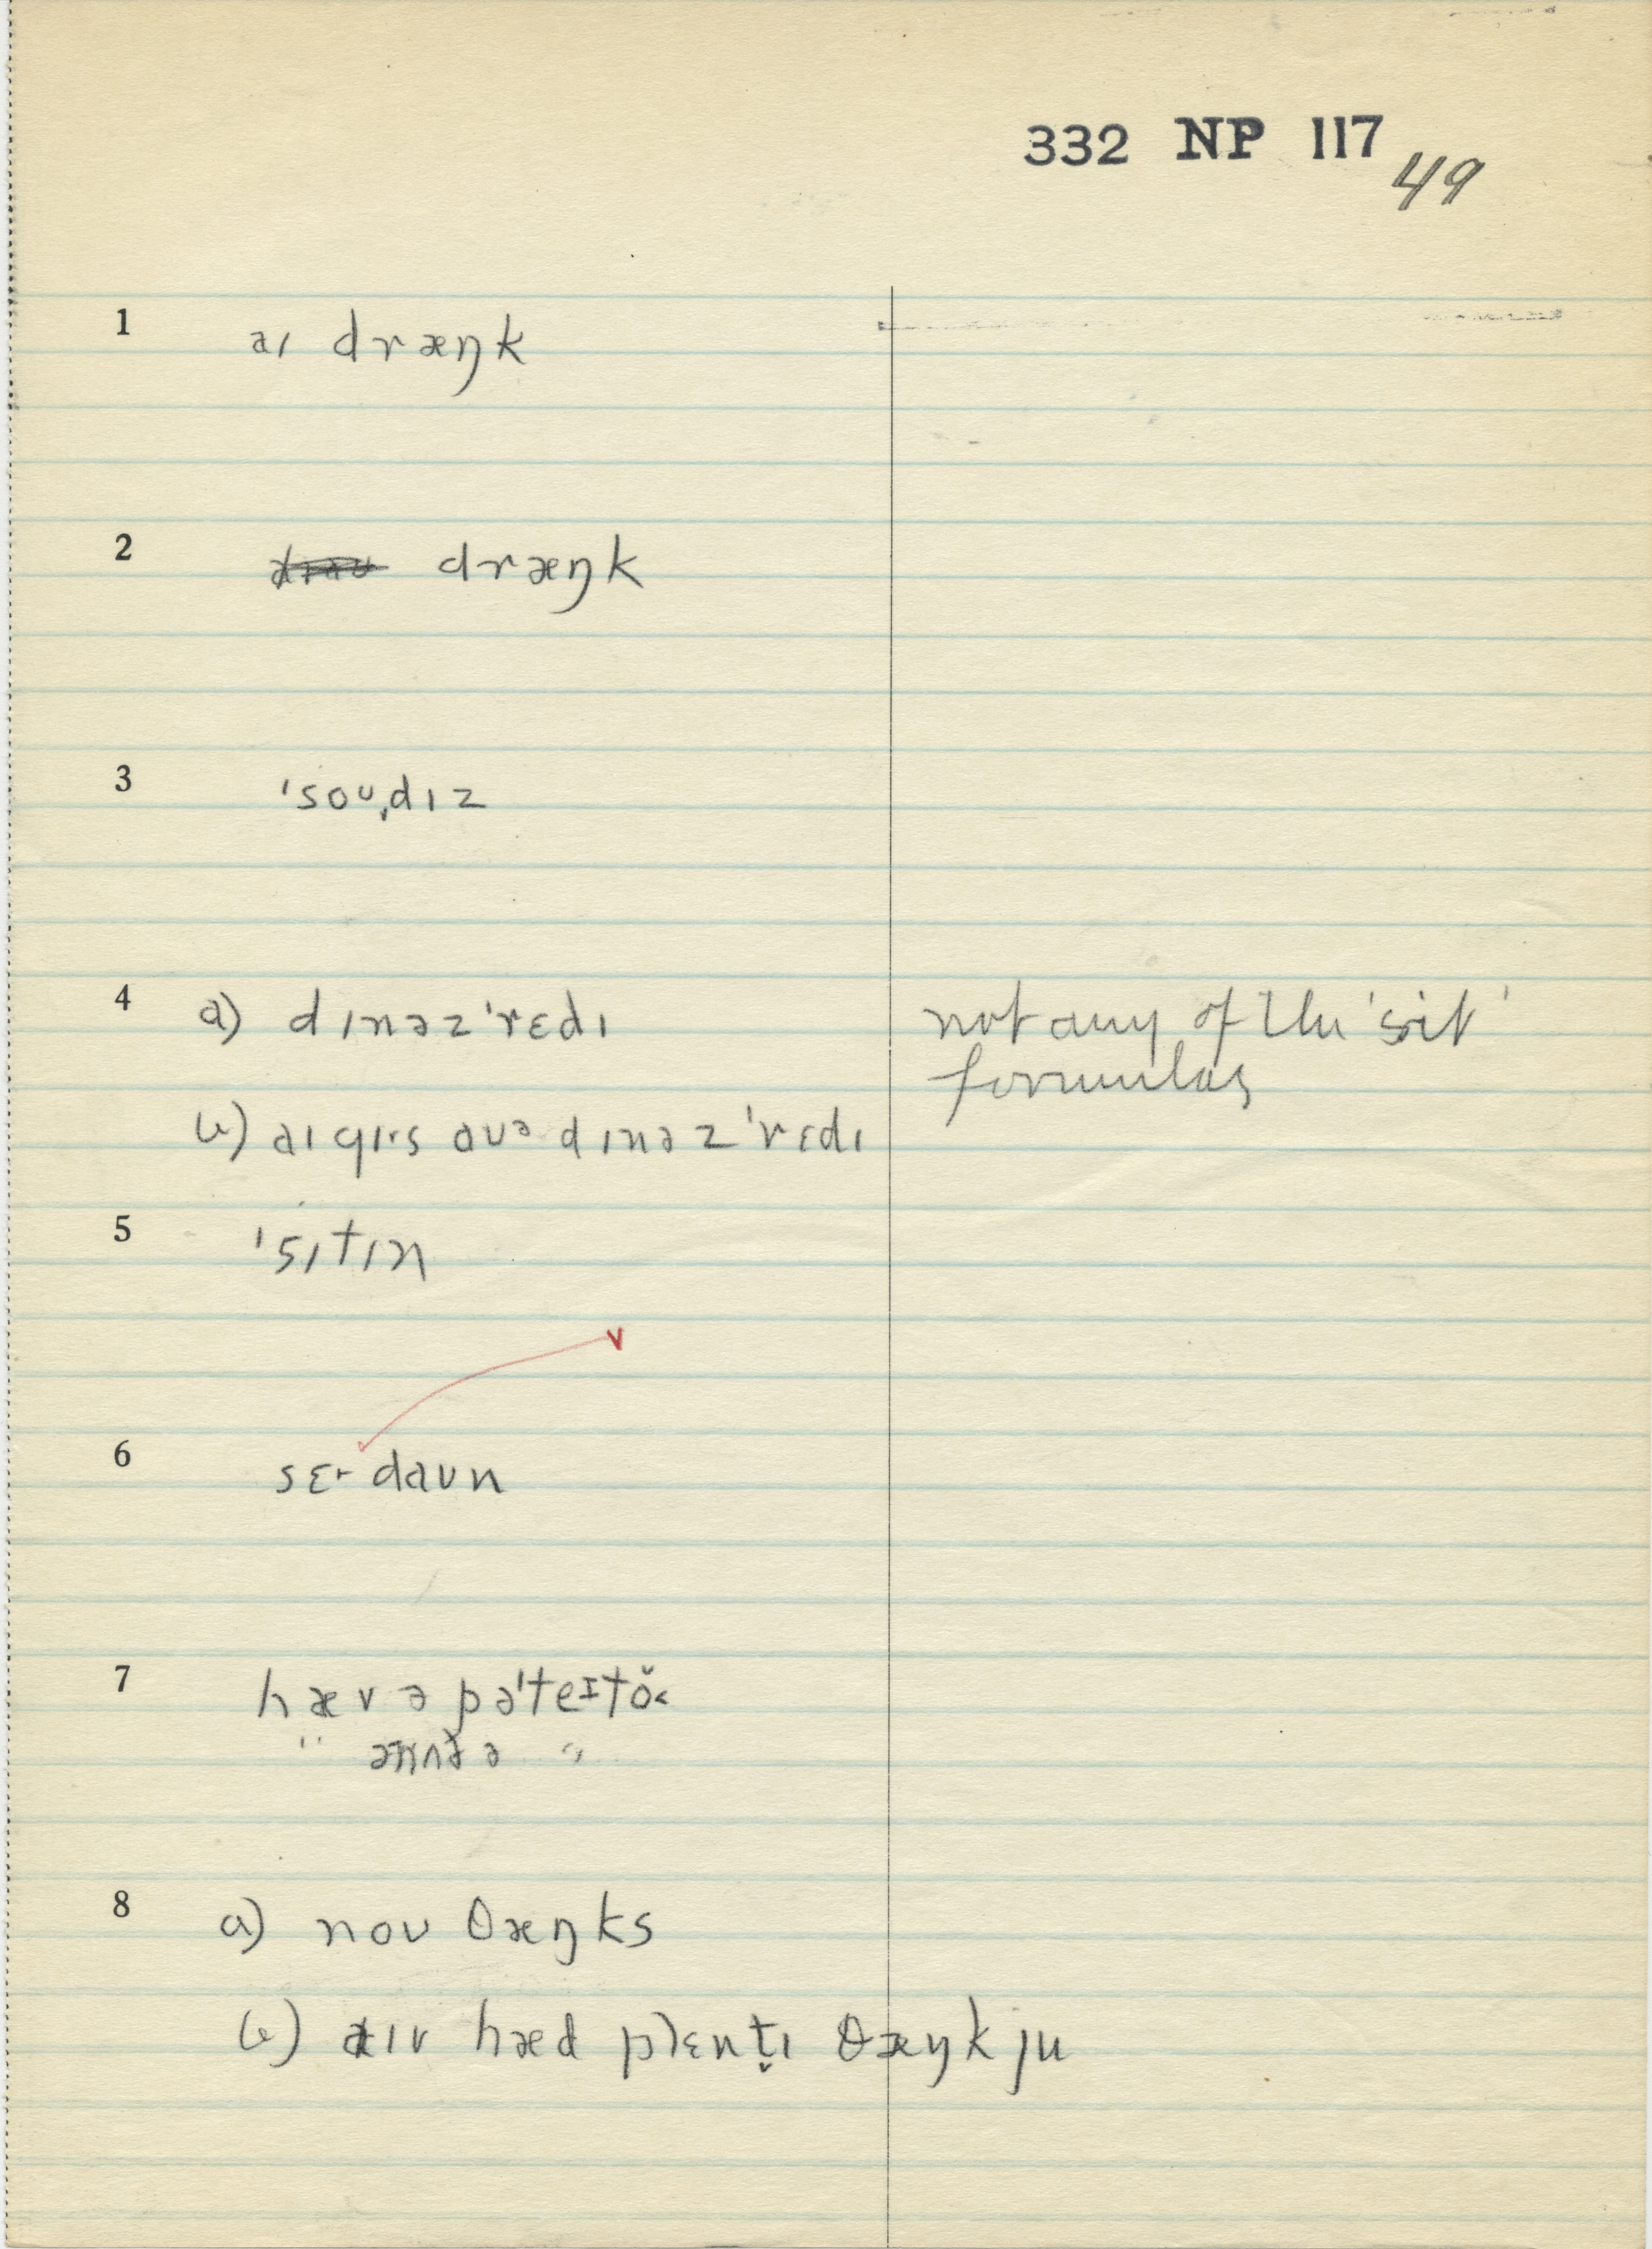 332 NP 117
49
1 aɪ dræŋk
2 dræŋk
3 ˈsoʊˌdɪz
4 a) dɪnəzˈrɛdɪ not any of the 'sit'
formulas
b) aɪ gɪs aʊə dɪnəzˈrɛdɪ
5 ˈsɪtɪn
6 sɛt daʊn
v
7 hæv ə pəˈteɪtŏ<
" ənʌðə "
8 a) noʊ θæŋks
b) aɪv hæd plɛnt̬ɪ θæŋk ju